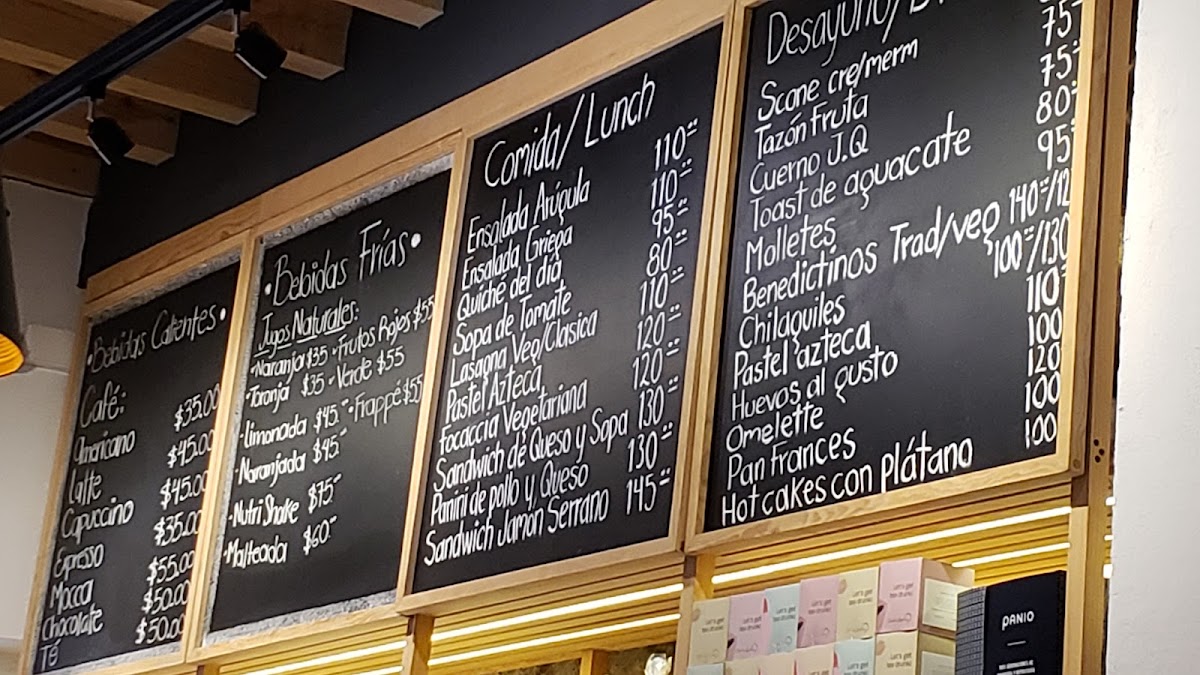 •Bebidas Calientes•
Café:
Americano $35.00
Latte $45.00
Capuccino $45.00
Espresso $35.00
Mocca $55.00
Chocolate $50.00
Té $50.00
•Bebidas Frías•
Jugos Naturales:
•Naranja $35 •Frutos Rojos $55
•Toronja $35 •Verde $55
•Limonada $45.- •Frappé $55
•Naranjada $45.-
•Nutri Shake $75.-
•Malteada $60.-
Comida/Lunch
Ensalada Arúgula 110.-
Ensalada Griega 110.-
Quiché del diá 95.-
Sopa de Tomate 80.-
Lasagna Veg/Clasica 110.-
Pastel Azteca 120.-
Focaccia Vegetariana 120.-
Sandwich de Queso y Sopa 130.-
Panini de pollo y Queso 130.-
Sandwich Jamon Serrano 145.-
Desayuno/B
Scone cre/merm
Tazón Fruta 75.-
Cuerno J.Q 75.-
Toast de aguacate 80.-
Molletes 95.-
Benedictinos Trad/veg 140.-/12
Chilaquiles 100.-/130
Pastel azteca 110.-
Huevos al gusto 100
Omelette 120
Pan Frances 100
Hotcakes con Plátano 100
Let's get
PANIO